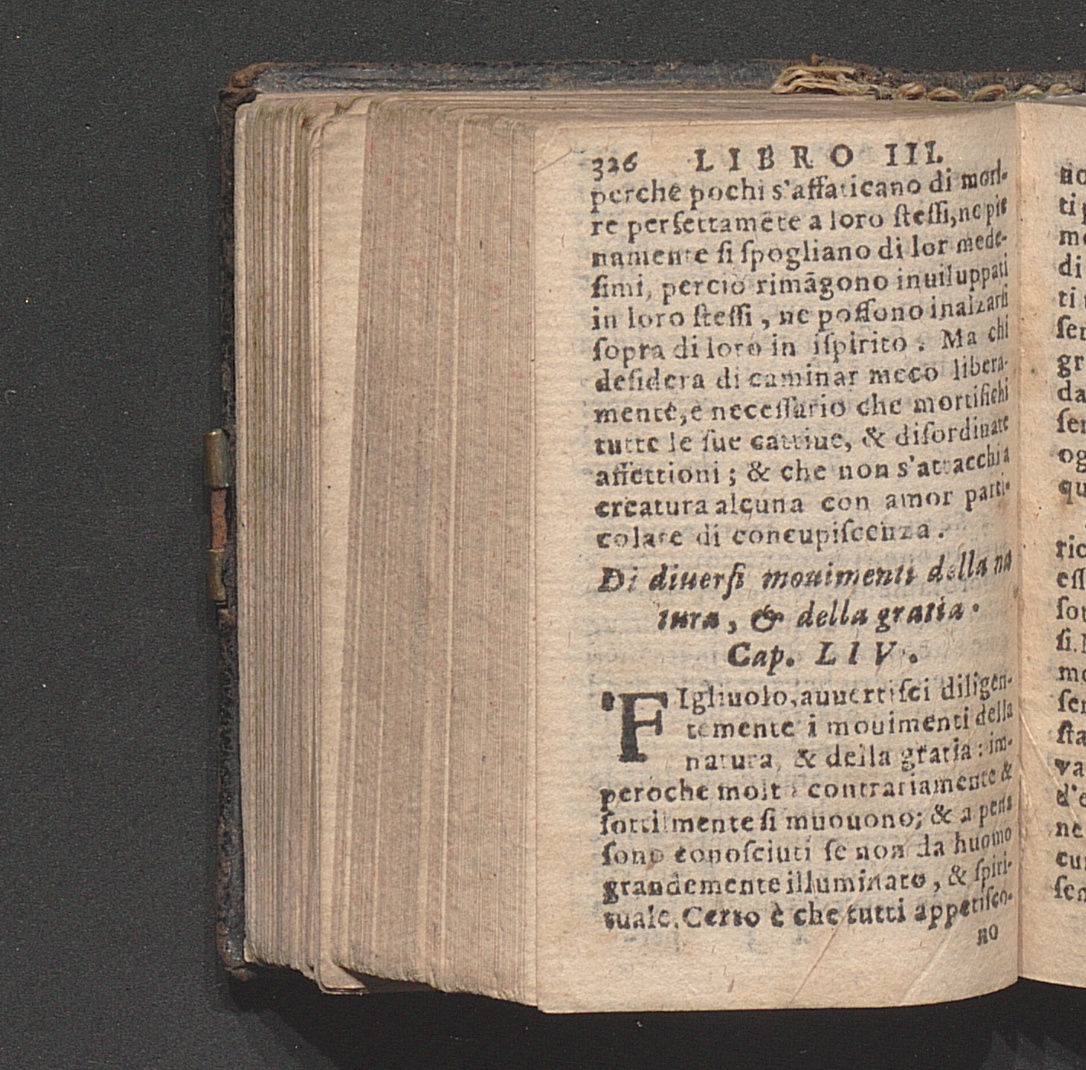 326 LIBRO III.
perche pochi s'affaticano di mori-
re perfettamẽte a loro ſteſſi, ne pie
namente ſi ſpogliano di lor mede-
ſimi, percio rimãgono inuiluppati
in loro ſteſſi, ne poſſono inalzarſi
ſopra di loro in iſpirito. Ma chi
deſidera di caminar meco libera-
mente, è neceſſario che mortifichi
tutte le ſue cattiue, & diſordinate
affettioni; & che non s'attacchi a
creatura alcuna con amor parti-
colare di concupiſcenza.
Di diuerſi mouimenti della na
tura, & della gratia.
Cap. LIV.
FIgliuolo, auuertiſci diligen-
temente i mouimenti della
natura, & della gratia: im-
peroche molto contrariamente &
ſottilmente ſi muouono; & a pena
ſono conoſciuti ſe non da huomo
grandemente illuminato, & ſpiri-
tuale. Certo è che tutti appetiſco-
no
no
ti
me
di
ti
ſer
gr
da
ſer
og
qu
ric
eſſ
ſot
ſi.
mo
ſer
ſta
va
d'e
ne
cu
ſen